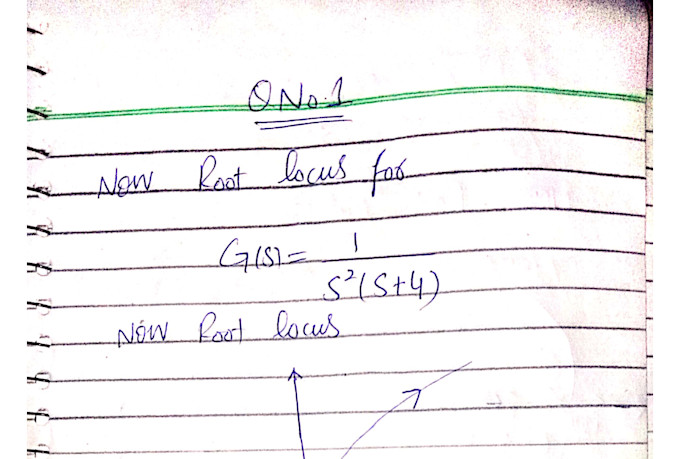 Q No.1
Now Root locus for
G(s) = 1 / s²(s+4)
Now Root locus